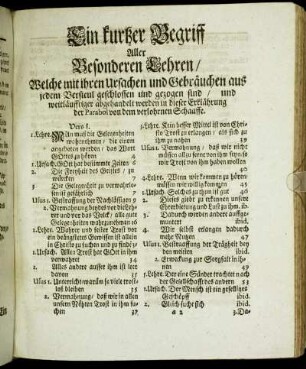 Ein kurtzer Begriff
Aller
Besonderen Lehren/
Welche mit ihren Ursachen und Gebräuchen aus
jedem Versicul geschlossen und gezogen sind / und
weitläufftiger abgehandelt werden in dieser Erklährung
der Parabol von dem verlohrnen Schaaffe.
Vers 1.
1. Lehre. Wir muß die Gelegenheiten
wahrnehmen / die einem
angeboten werden / das Wort
Gottes zu hören 4
1. Ursach. Gott hat bestimmte Zeiten 6
2. Die Freyheit des Geistes / zu
würcken 7
3. Die Gelegenheit zu verwahrlosen
ist gefährlich 8
Usus 1. Bestraffung der Nachlässigen 9
2. Vermahnung beydes vor die Lehrer
und vor das Volck / alle gute
Gelegenheiten wahrzunehmen 16
2. Lehre. Wahrer und fester Trost vor
ein betrübtes Gewissen ist allein
in Christo zu suchen und zu finden
1. Ursach. Aller Trost hat Gott in ihm
verwahret 34
2. Alles andere ausser ihm ist leer
davon 35
Usus 1. Unterricht warum so viele trostlos
bleiben 35
2. Vermahnung / daß wir in allen
unsern Nöhten Trost in ihm suchen
37
3. Lehre. Kein besser Mittel ist von Christo
Trost zu erlangen / als sich zu
ihm zu nahen 39
Usus 1. Vermahnung / daß wir nicht
müssen allzu ferne von ihm seyn / da
wir Trost von ihm haben wollen
40
4. Lehre. Wenn wir kommen zu hören
müssen wir willig kommen 45
1. Ursach. Solches zu thun ist gut 46
2. Dieses giebt zu erkennen unsere
Freundschafft und Lust zu Christo
3. Dadurch werden andere auffgemuntert
4. Wir selbst erlangen dadurch
mehr Nutzen 47
Usus 1. Bestraffung der Trägheit bey
den meisten 47
2. Erweckung zur Sorgfalt in ihnen
49
5. Lehre. Der eine Sünder trachtet nach
der Gesellschafft des andern 53
1. Ursach. Der Mensch ist ein geselliges
Geschöpff ibid.
2. Gleich sucht sich ibid.
a 2 3. Da-